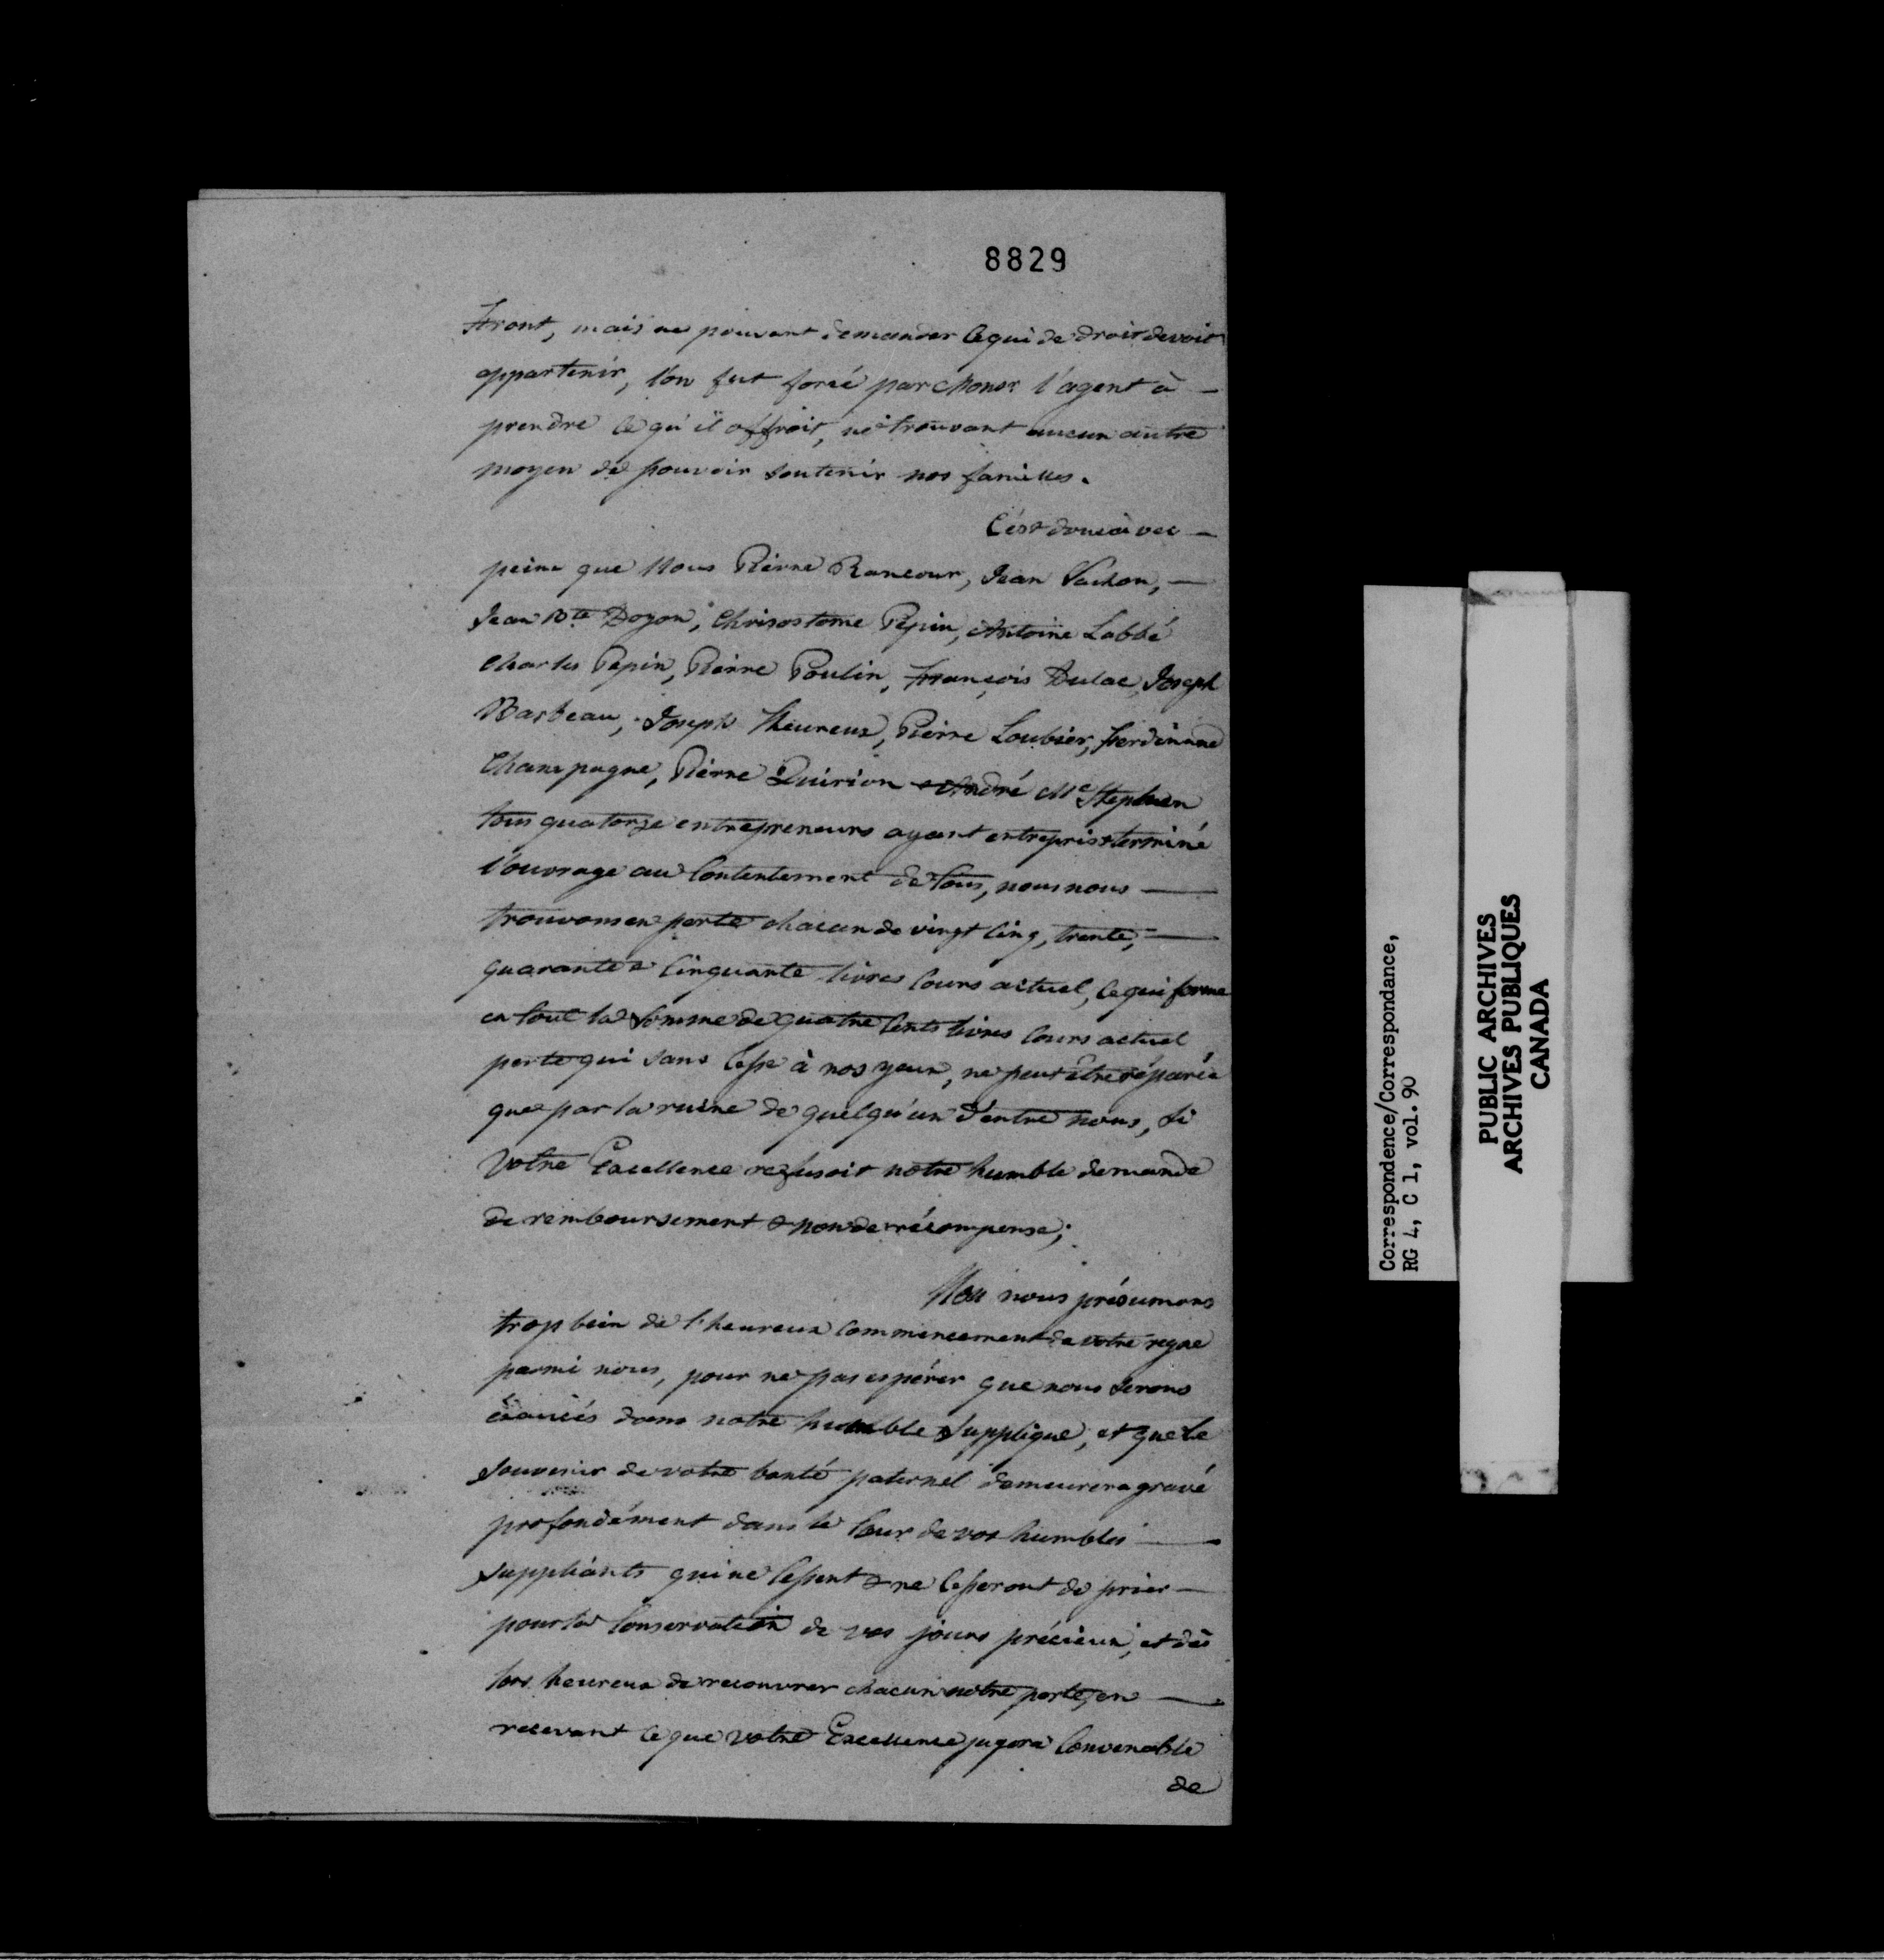 8829
Front, mais ne pouvant demander ce qui de droit devoit
appartenir, l'on fut forcé par Monsr l'agent à —
prendre ce qu'il offroit, ne trouvant aucun autre
moyen de pouvoir soutenir nos familles.
C'est donc avec —
peine que Nous Pierre Rancour, Jean Vachon, —
Jean Bte Doyon, Chrisostome Pepin, Antoine Labbé
Charles Pepin, Pierre Poulin, François Dulac, Joseph
Barbeau, Joseph Lheureux, Pierre Loubier, Ferdinand
Champagne, Pierre Quirion & André McStephen
tous quatorze entrepreneurs ayant entrepris & terminé
l'ouvrage au Contentement de tous, nous nous —
trouvons en perte chacun de vingt cinq, trente, —
quarante & cinquante livres Cours actuel, ce qui forme
en tout la Somme de quatre Cents livres Cours actuel
perte qui sans Cesse à nos yeux, ne peut être réparée
que par la ruine de quelqu'un d'entre nous, si
Votre Excellence refusoit notre humble demande
de remboursement & non de récompense;
Non nous présumons
trop bien de l'heureux Commencement de votre regne
parmi nous, pour ne pas espérer que nous serons
éxaucés dans notre humble Supplique, et que le
Souvenir de votre bonté paternel demeurera gravé
profondément dans le Cœur de vos humbles —
Suppliants qui ne Cessent & ne Cesseront de prier —
pour la Conservation de vos jours précieux, et dès
lors heureux de recouvrer chacun notre perte, en —
recevant ce que Votre Excellence jugera Convenable
de
Correspondence/Correspondance,
RG 4, C 1, vol. 90
PUBLIC ARCHIVES
ARCHIVES PUBLIQUES
CANADA